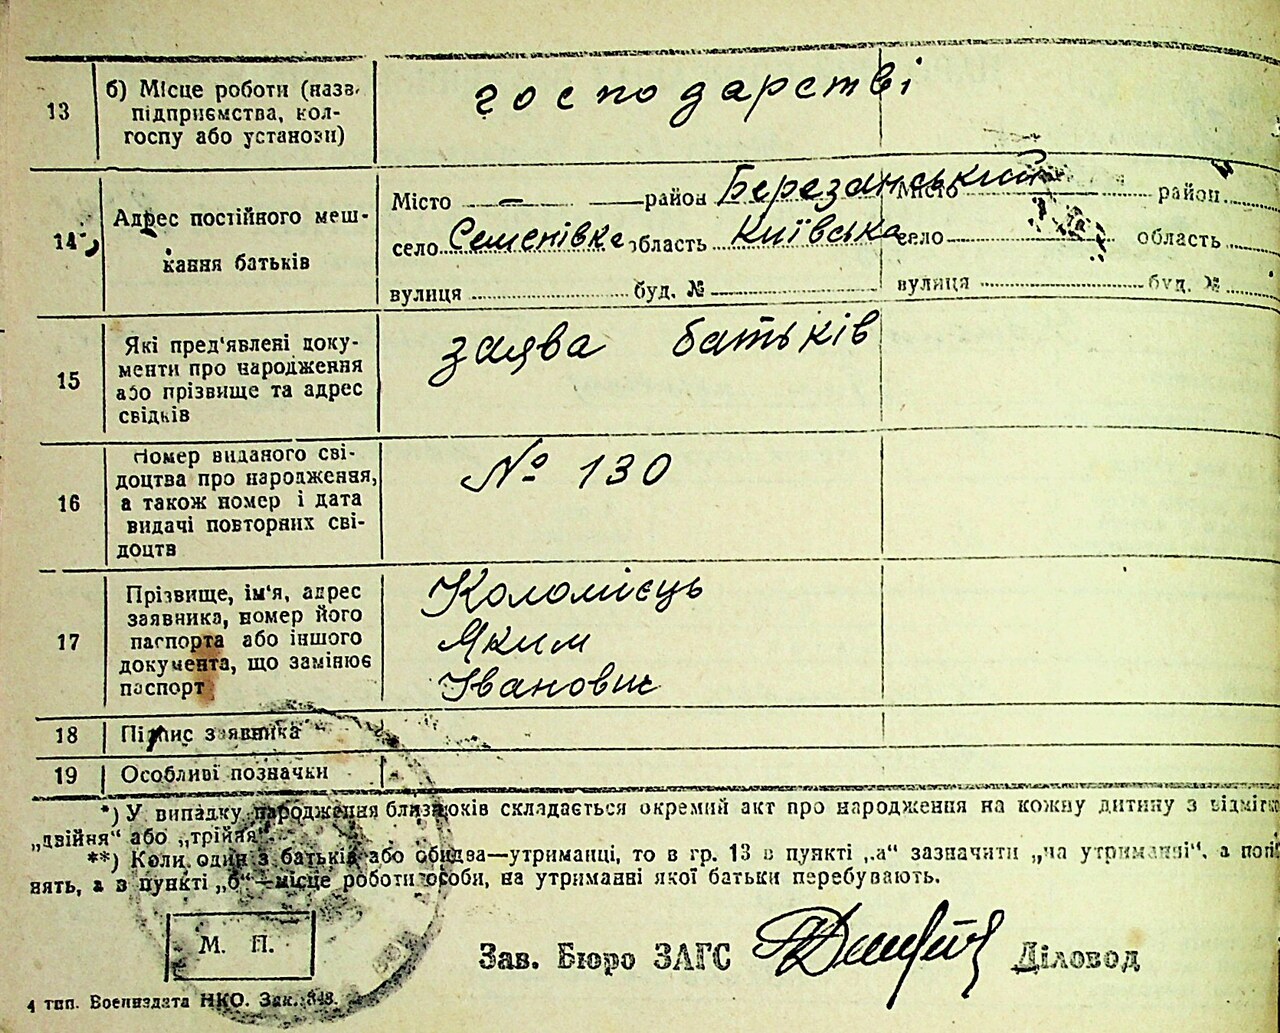 13
б) Місце роботи (назв.
підприємства, кол-
госпу або установи)
господарстві
14
Адрес постійного меш-
кання батьків
Місто — район Березанський
село Семенівка область Київська
вулиця буд. №
Місто район
село область
вулиця буд. №
15
Які пред'явлені доку-
менти про народження
або прізвище та адрес
свідків
заява батьків
16
Номер виданого сві-
доцтва про народження,
а також номер і дата
видачі повторних сві-
доцтв
№ 130
17
Прізвище, ім'я, адрес
заявника, номер його
паспорта або іншого
документа, що замінює
паспорт
Коломієць
Яким
Іванович
18
Підпис заявника
19
Особливі позначки
*) У випадку народження близнюків складається окремий акт про народження на кожну дитину з відмітк
„двійня“ або „трійня“.
**) Коли один з батьків або обидва—утриманці, то в гр. 13 в пункті „а“ зазначити „на утриманні“, а
нять, а в пункті „б“—місце роботи особи, на утриманні якої батьки перебувають.
М. П.
Зав. Бюро ЗАГС
Діловод
4 тип. Воениздата НКО. Зак. 348.